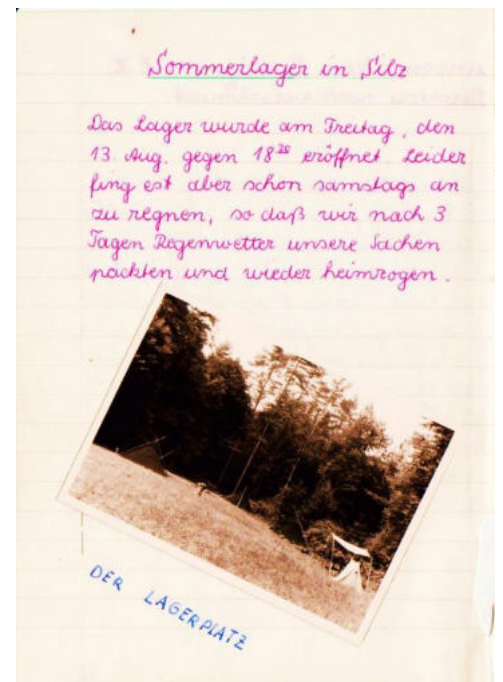 Sommerlager in Silz
Das Lager wurde am Freitag, den
13. Aug. gegen 18³⁰ eröffnet. Leider
fing est aber schon samstags an
zu regnen, so daß wir nach 3
Tagen Regenwetter unsere Sachen
packten und wieder heimzogen.
DER LAGERPLATZ